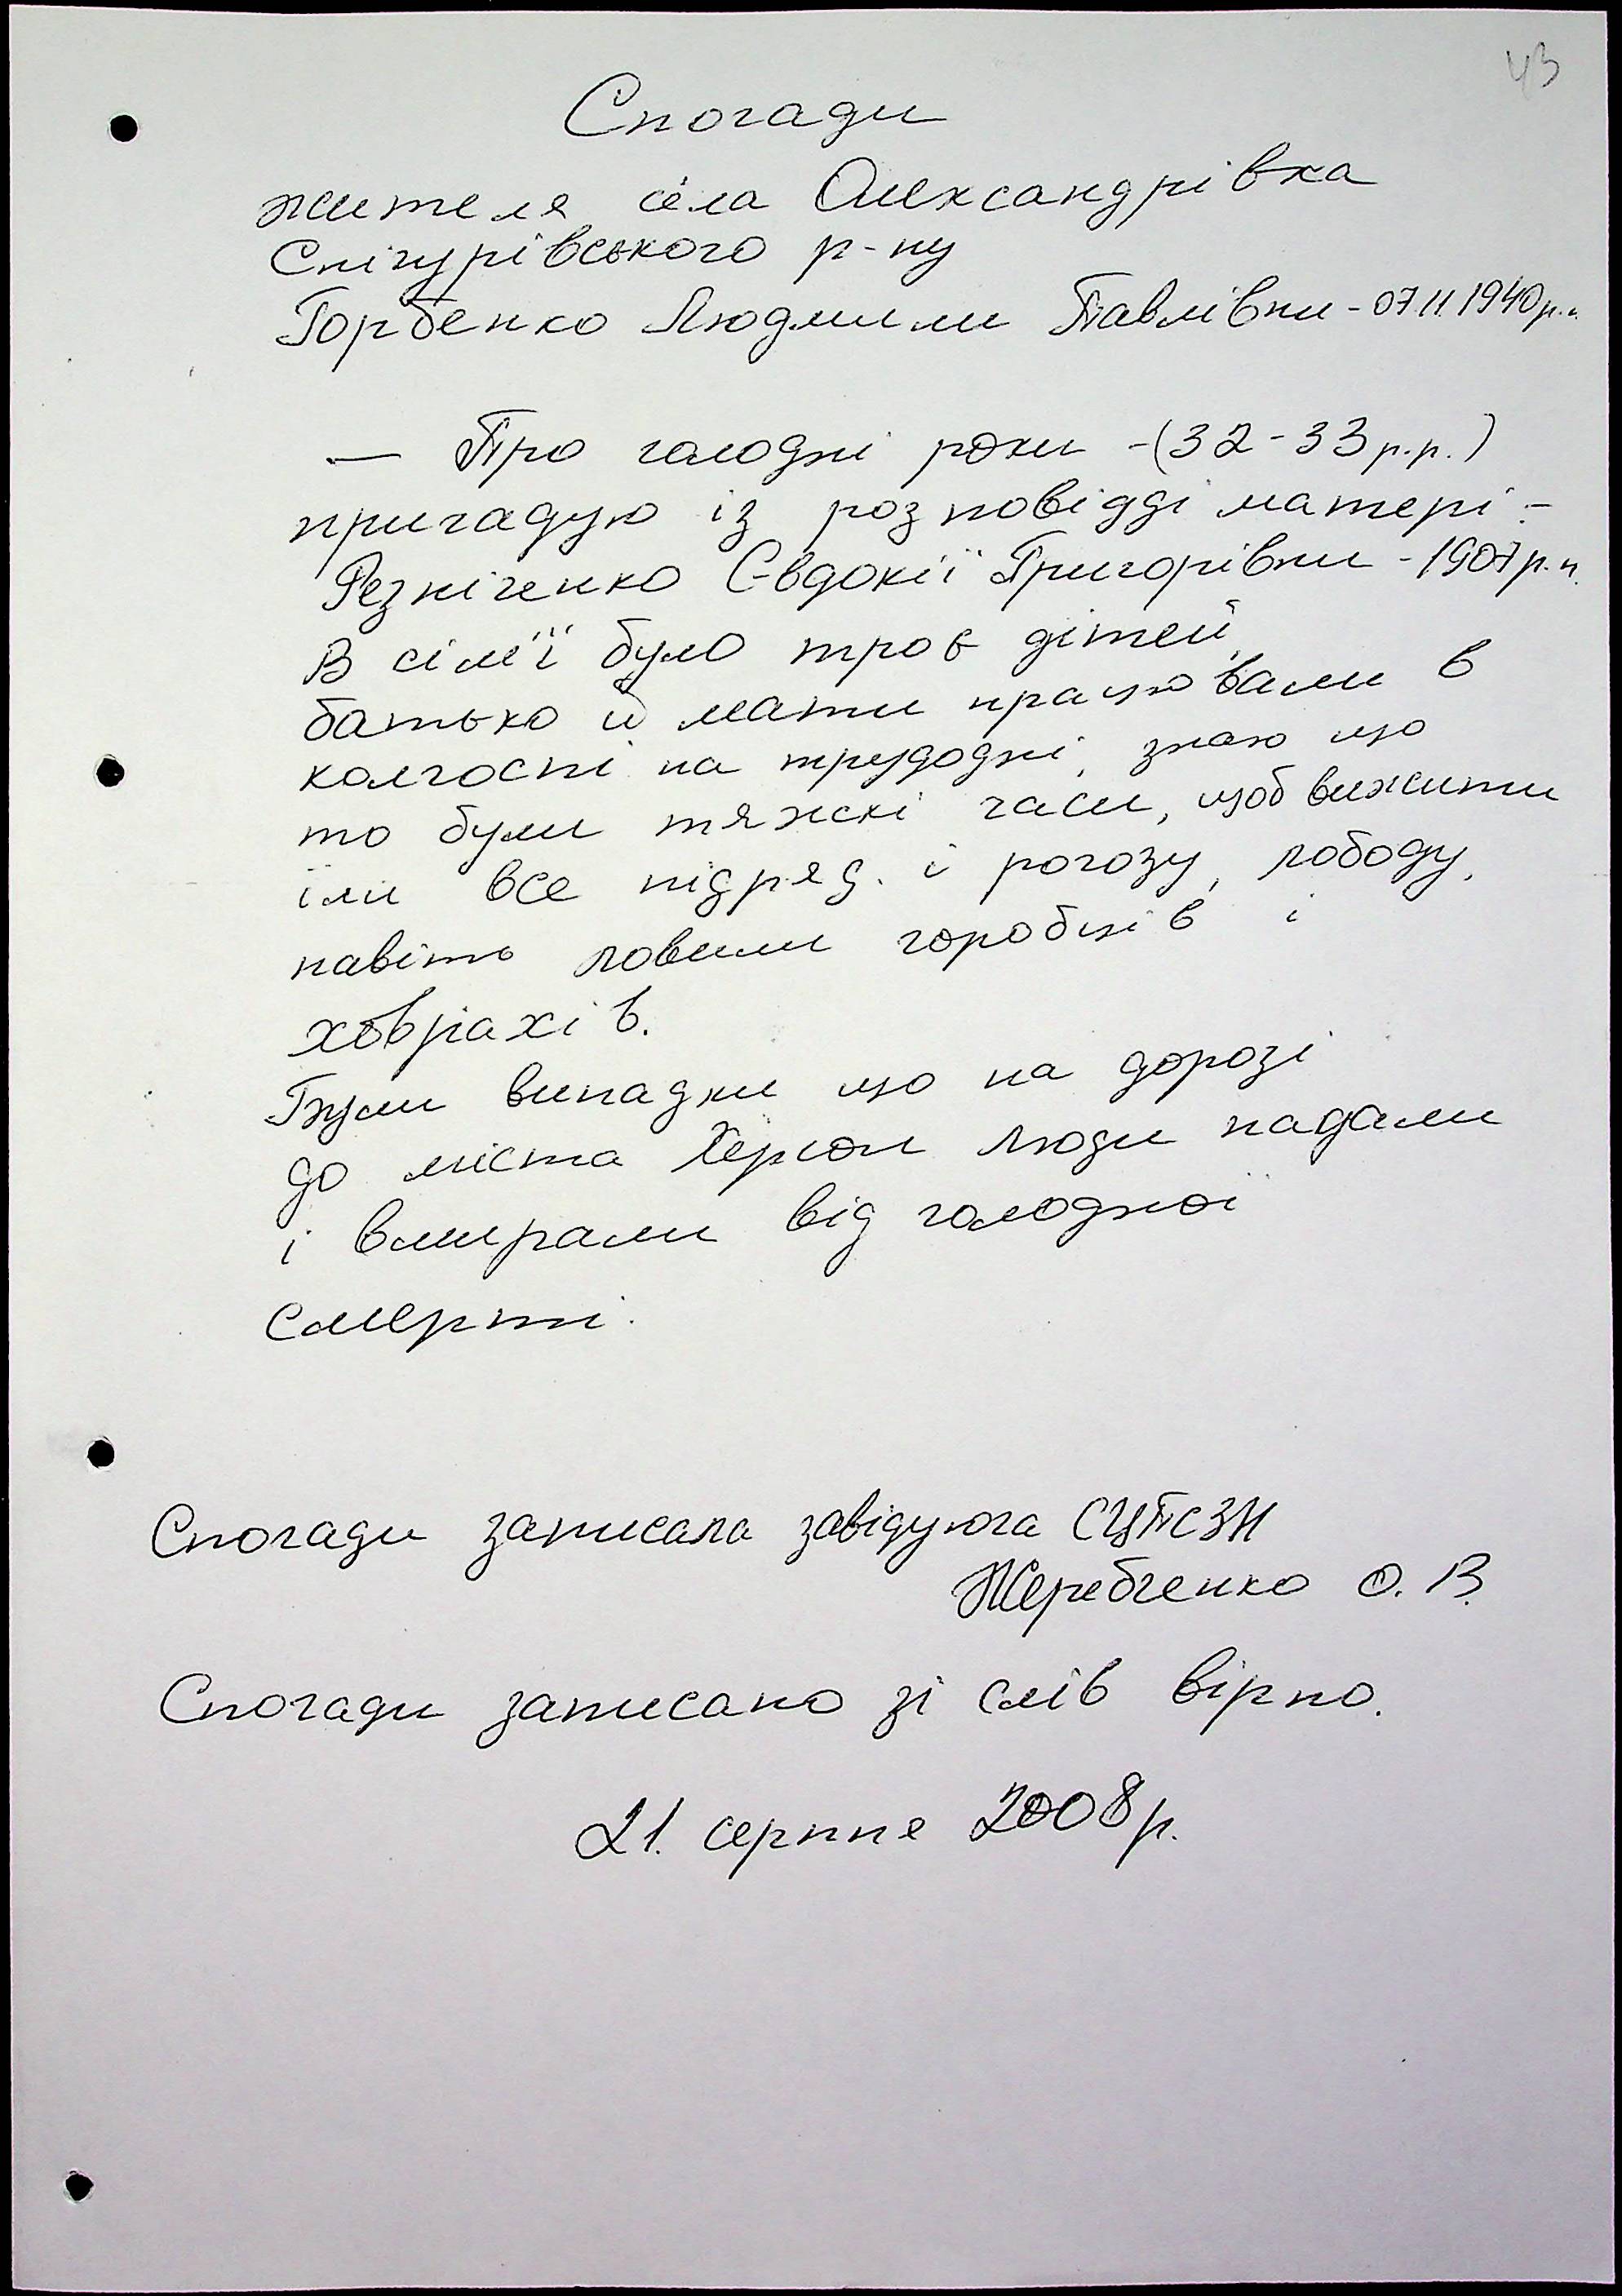 43
Спогади
жителя села Олександрівка
Снігурівського р-ну
Горбенко Людмили Павлівни - 07.11.1940р.н.
— Про голодні роки - (32-33р.р.)
пригадую із розповідді матері -
Резніченко Євдокії Григорівни - 1907р.н.
В сім'ї було троє дітей,
батько й мати працювали в
колгоспі на трудодні, знаю що
то були тяжкі часи, щоб вижити
їли все підряд. і рогозу, лободу,
навіть ловили горобців і
ховрахів.
Були випадки що на дорозі
до міста Херсон люди падали
і вмирали від голодної
смерті.
Спогади записала завідуюча СЦПСЗН
Жеребченко О. В.
Спогади записано зі слів вірно.
21. серпня 2008р.